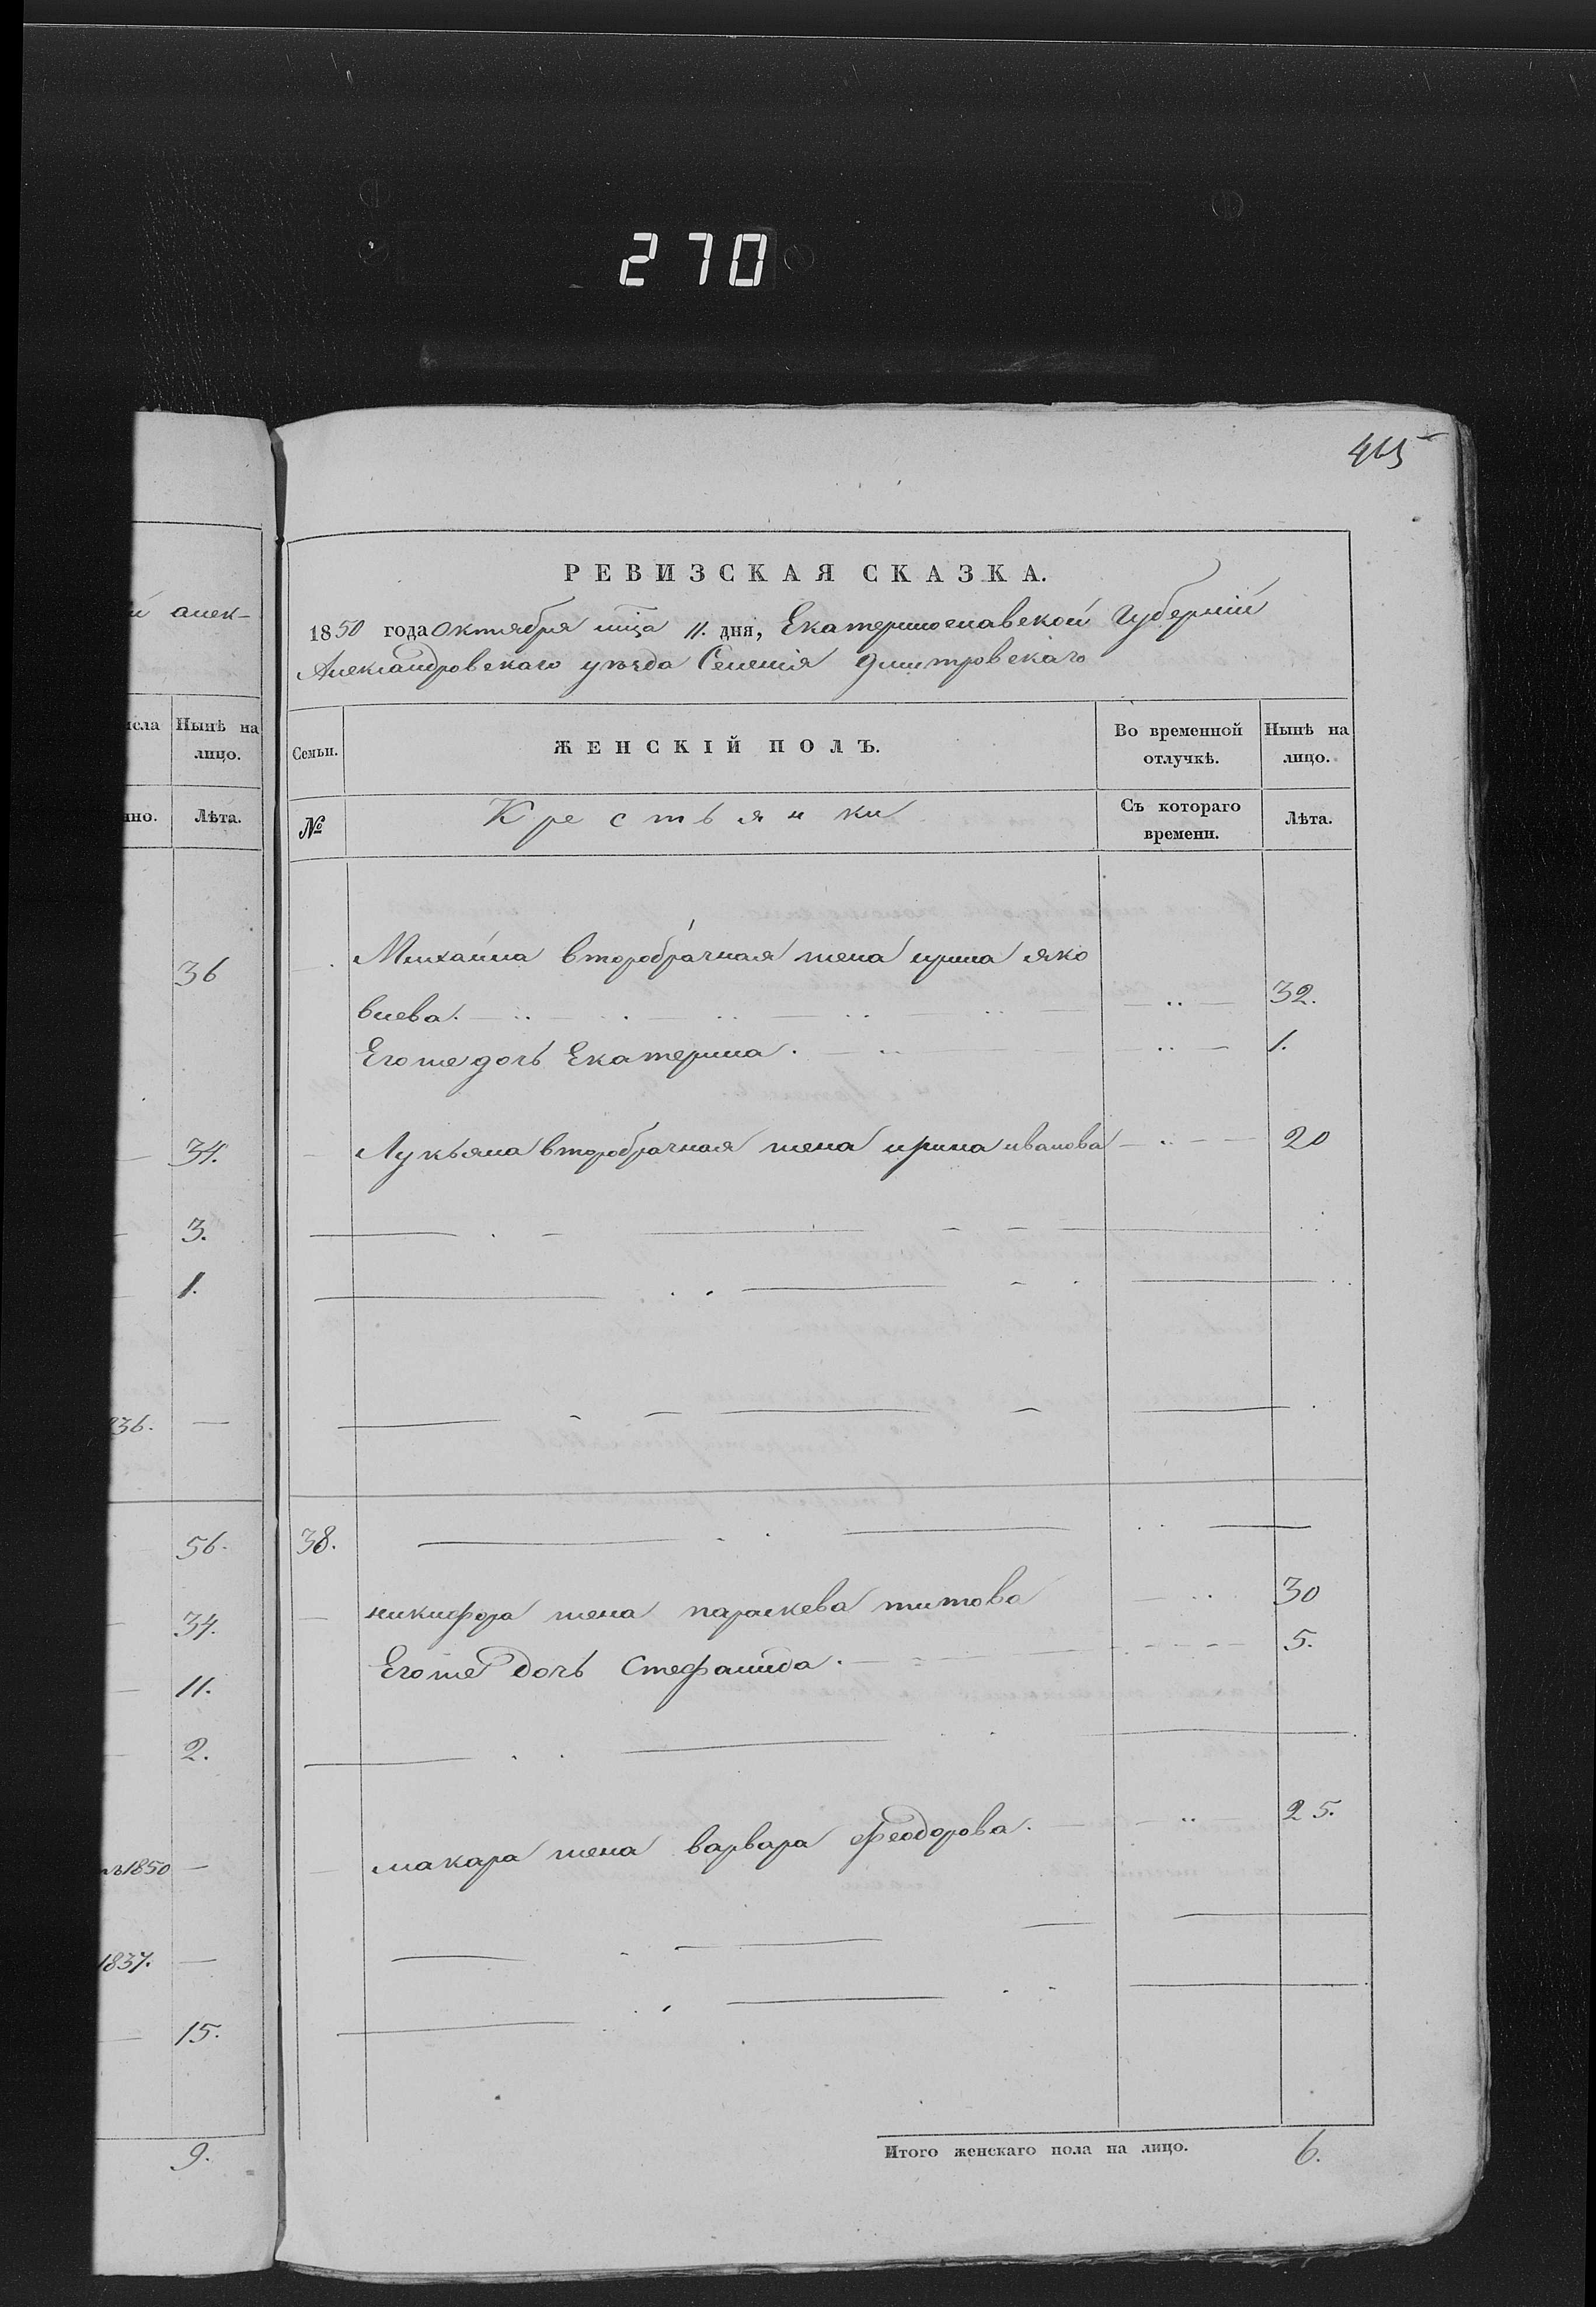 270
465
РЕВИЗСКАЯ СКАЗКА.
1850 года Октября мца 11. дня, Екатеринославской Губернии
Александровскаго уезда Селения Дмитровскаго
й алек-
исла
Нынѣ на лицо.
нно.
Лѣта.
Семьи.
ЖЕНСКІЙ ПОЛЪ.
Во временной отлучкѣ.
Нынѣ на лицо.
№
Крестьянки
Съ котораго времени.
Лѣта.
36
34.
3.
1.
836.
56.
34.
11.
2.
1850
1837.
15.
9.
Михаила второбрачная жена ирина яко
влева. 32.
Его же дочь Екатерина. 1.
Лукьяна второбрачная жена ирина иванова 20
38.
никифора жена параскева титова 30
Его же дочь Стефанида. 5.
макара жена варвара феодорова. 25.
Итого женскаго пола на лицо. 6.